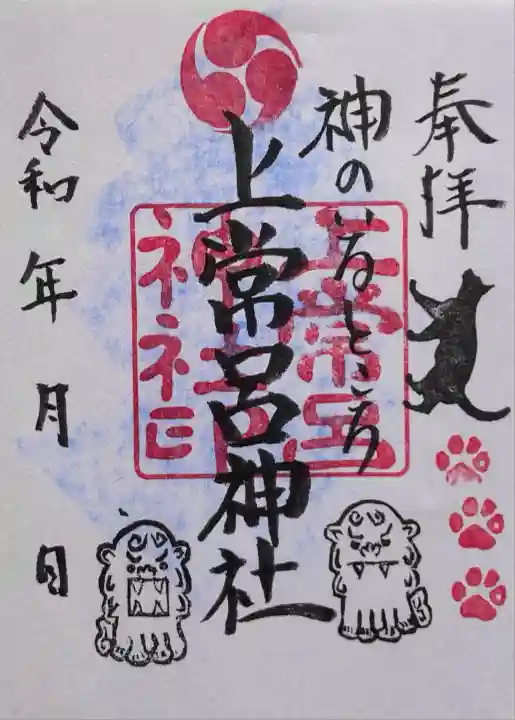 奉拝
神のいるところ
上常呂神社
上常呂
神社印
令和 年 月 日